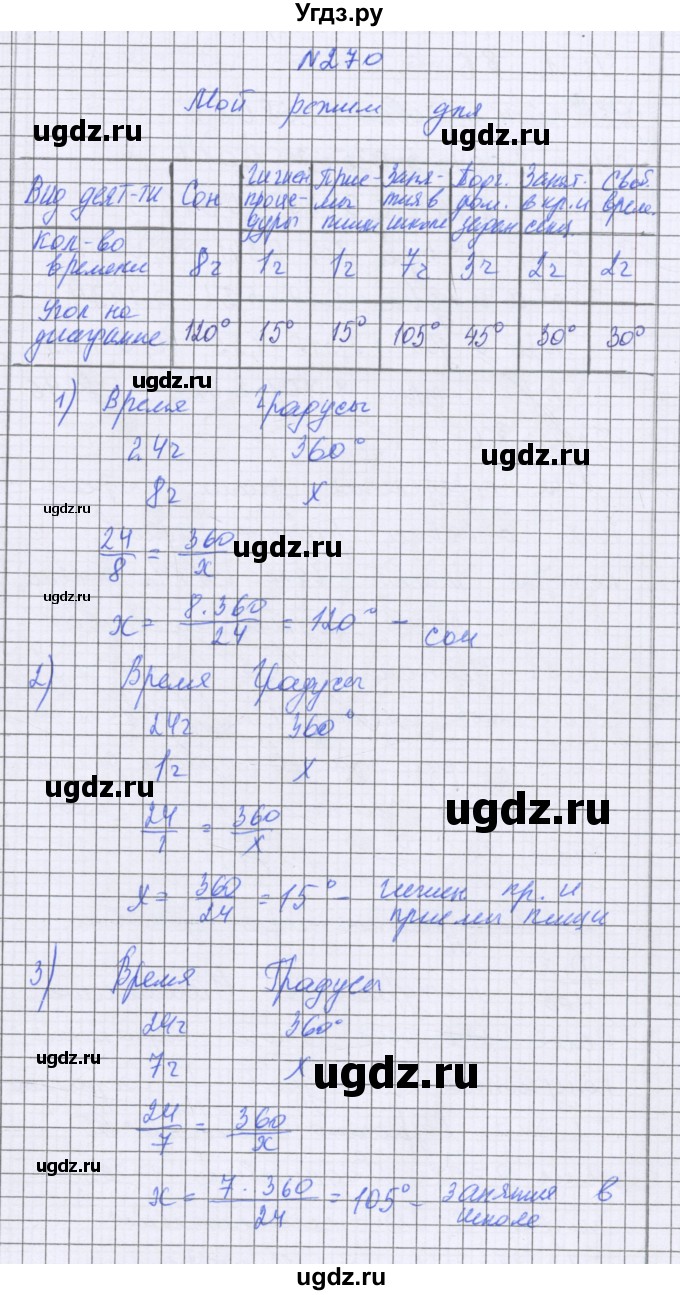 Угдз.ру
N270
Мой режим дня
ugdz.ru ugdz.ru
Вид деят-ти Сон Гигиен процедуры Прие-мы пищи Заня-тия в школе Пригот. дом. задан Занят. в кр. и секц. Своб. врем.
Кол-во времени 8ч 1ч 1ч 7ч 3ч 2ч 2ч
Угол на диаграмме 120° 15° 15° 105° 45° 30° 30°
ugdz.ru
1) Время Градусы
24ч 360°
ugdz.ru
8ч х
ugdz.ru
24/8 = 360/х
ugdz.ru
ugdz.ru
х = 8·360/24 = 120° - сон
2) Время Градусы
24ч 360°
1ч х
ugdz.ru
ugdz.ru
24/1 = 360/х
х = 360/24 = 15° - гигиен пр. и
приемы пищи
3) Время Градусы
24ч 360°
ugdz.ru
7ч х
ugdz.ru
24/7 = 360/х
ugdz.ru
х = 7·360/24 = 105° - занятия в
школе
ugdz.ru